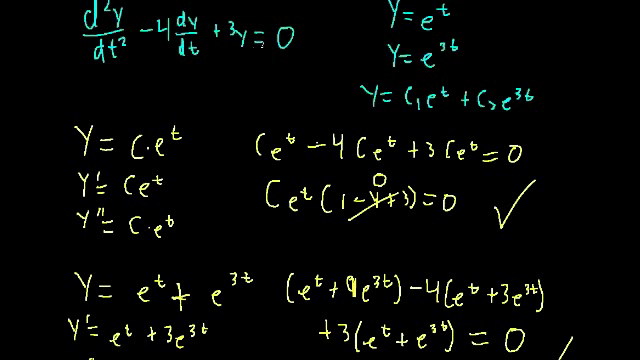 d²y/dt² - 4 dy/dt + 3y = 0
y = e^t
y = e^3t
y = c₁e^t + c₂e^3t
y = c·e^t
y' = ce^t
y'' = c·e^t
ce^t - 4ce^t + 3ce^t = 0
ce^t(1 - 4 + 3) = 0
0
✓
y = e^t + e^3t
y' = e^t + 3e^3t
(e^t + 9e^3t) - 4(e^t + 3e^3t)
+3(e^t + e^3t) = 0